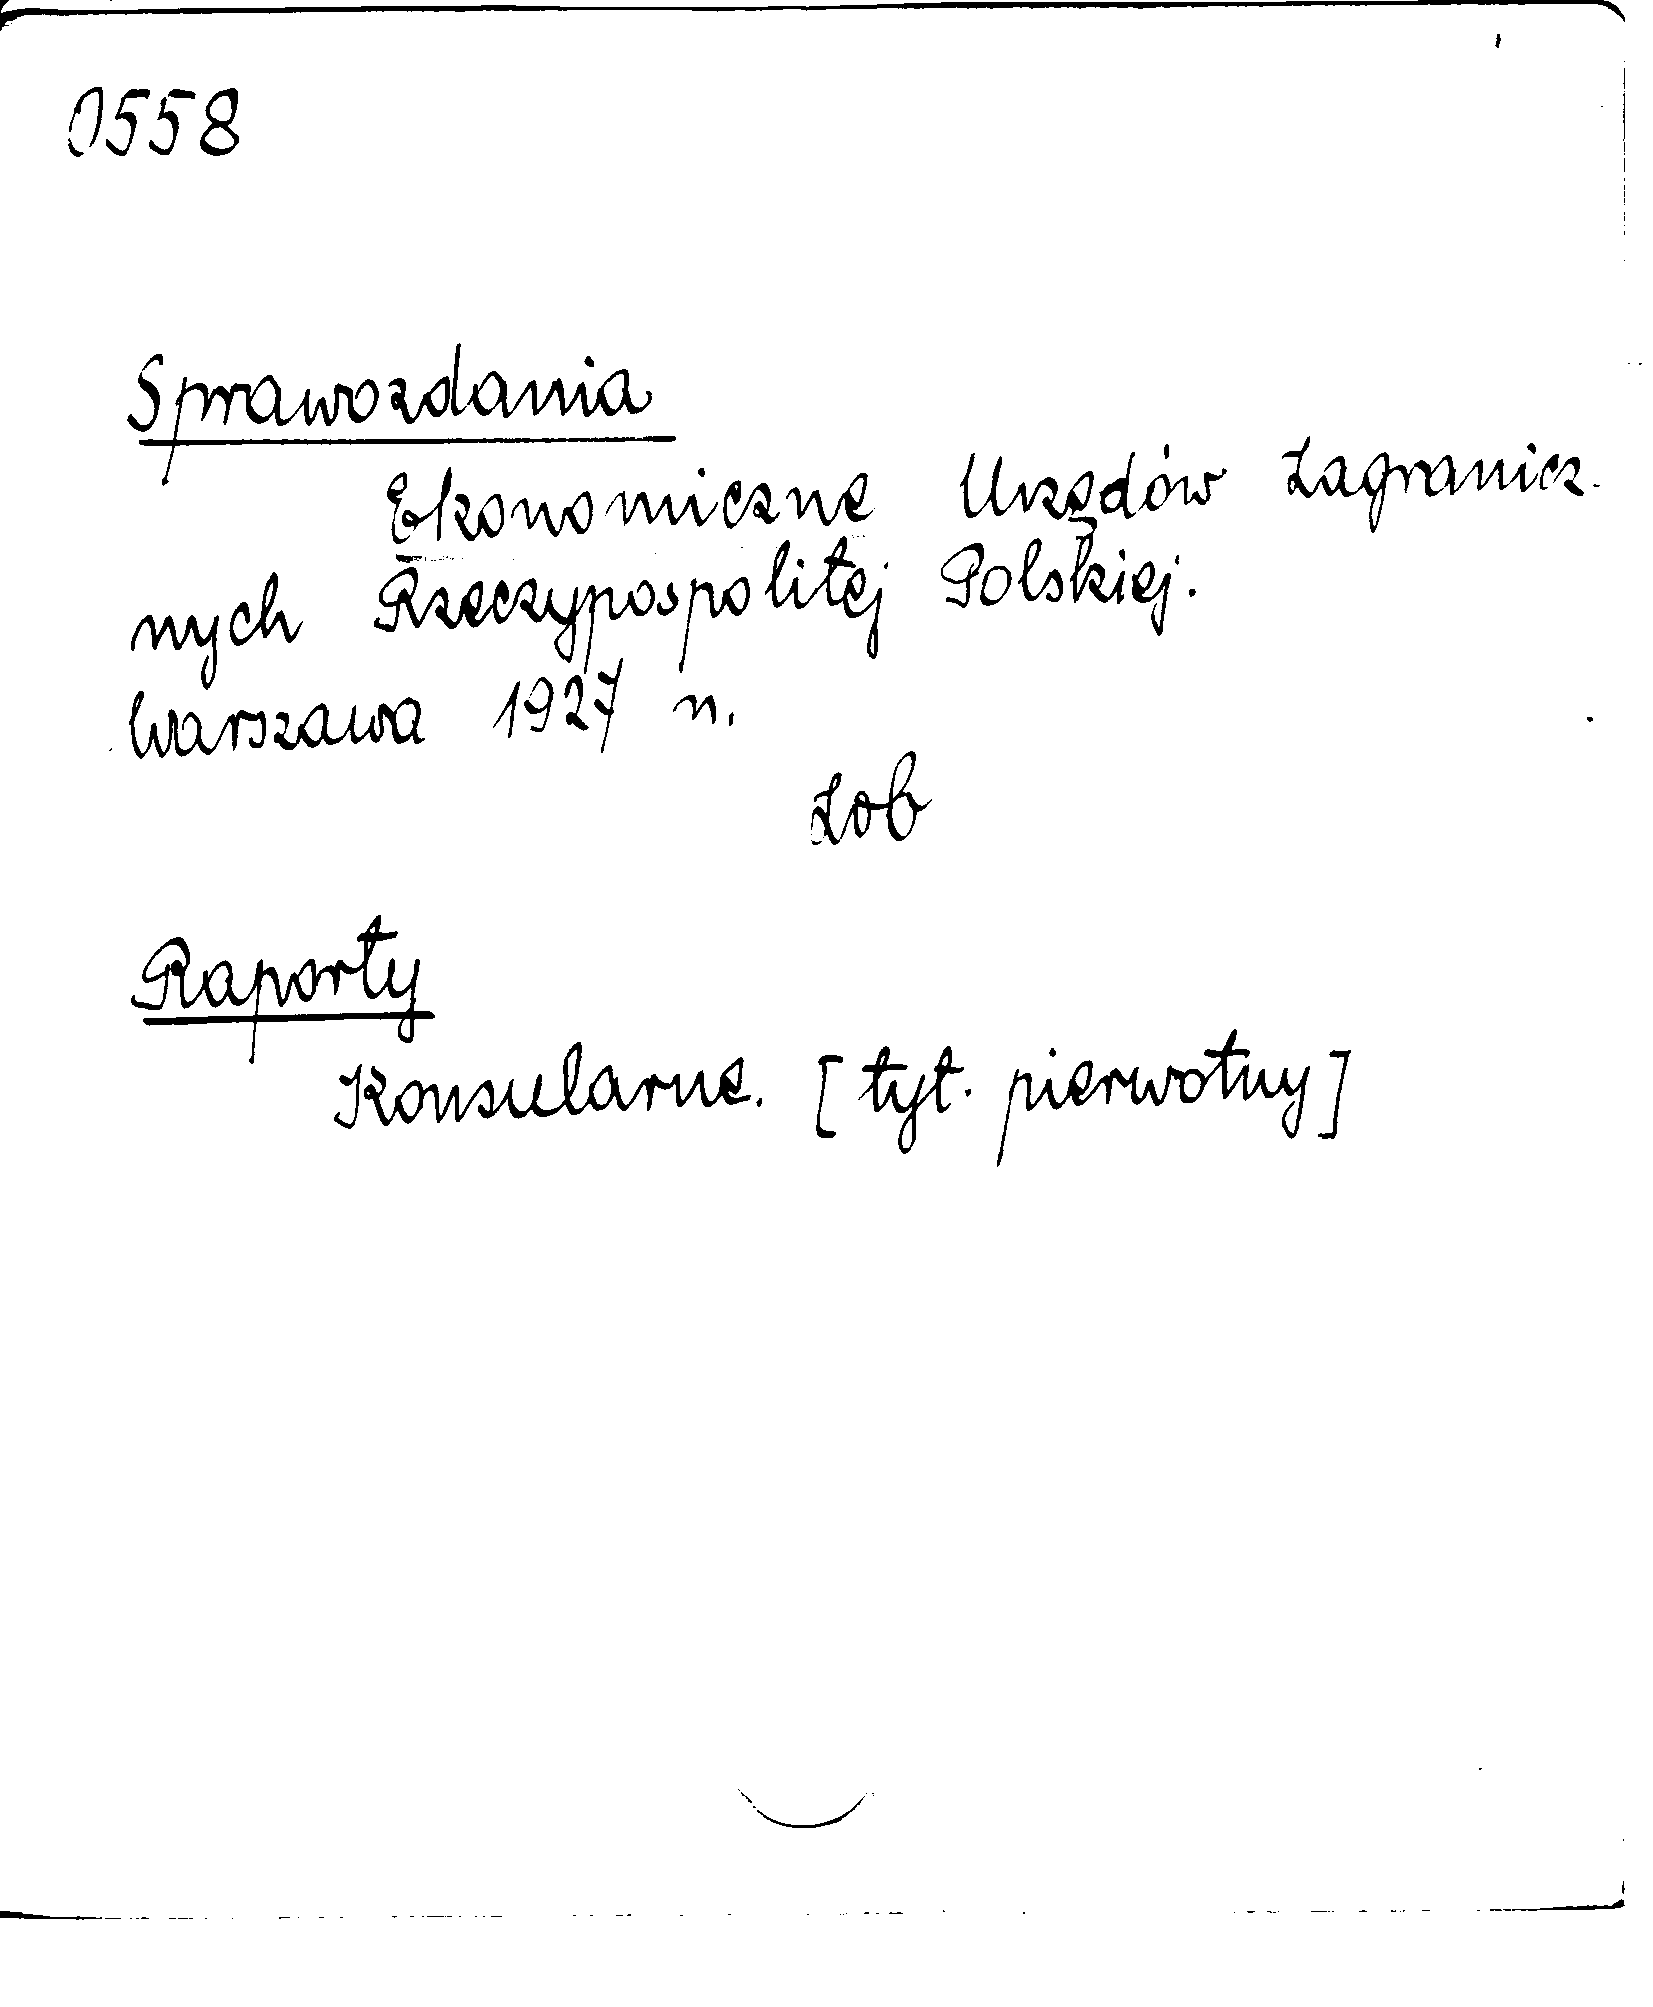 0558
Sprawozdania
Ekonomiczne Urzędów Zagranicz-
nych Rzeczypospolitej Polskiej.
Warszawa 1927 n.
Zob
Raporty
Konsularne. [tyt. pierwotny]